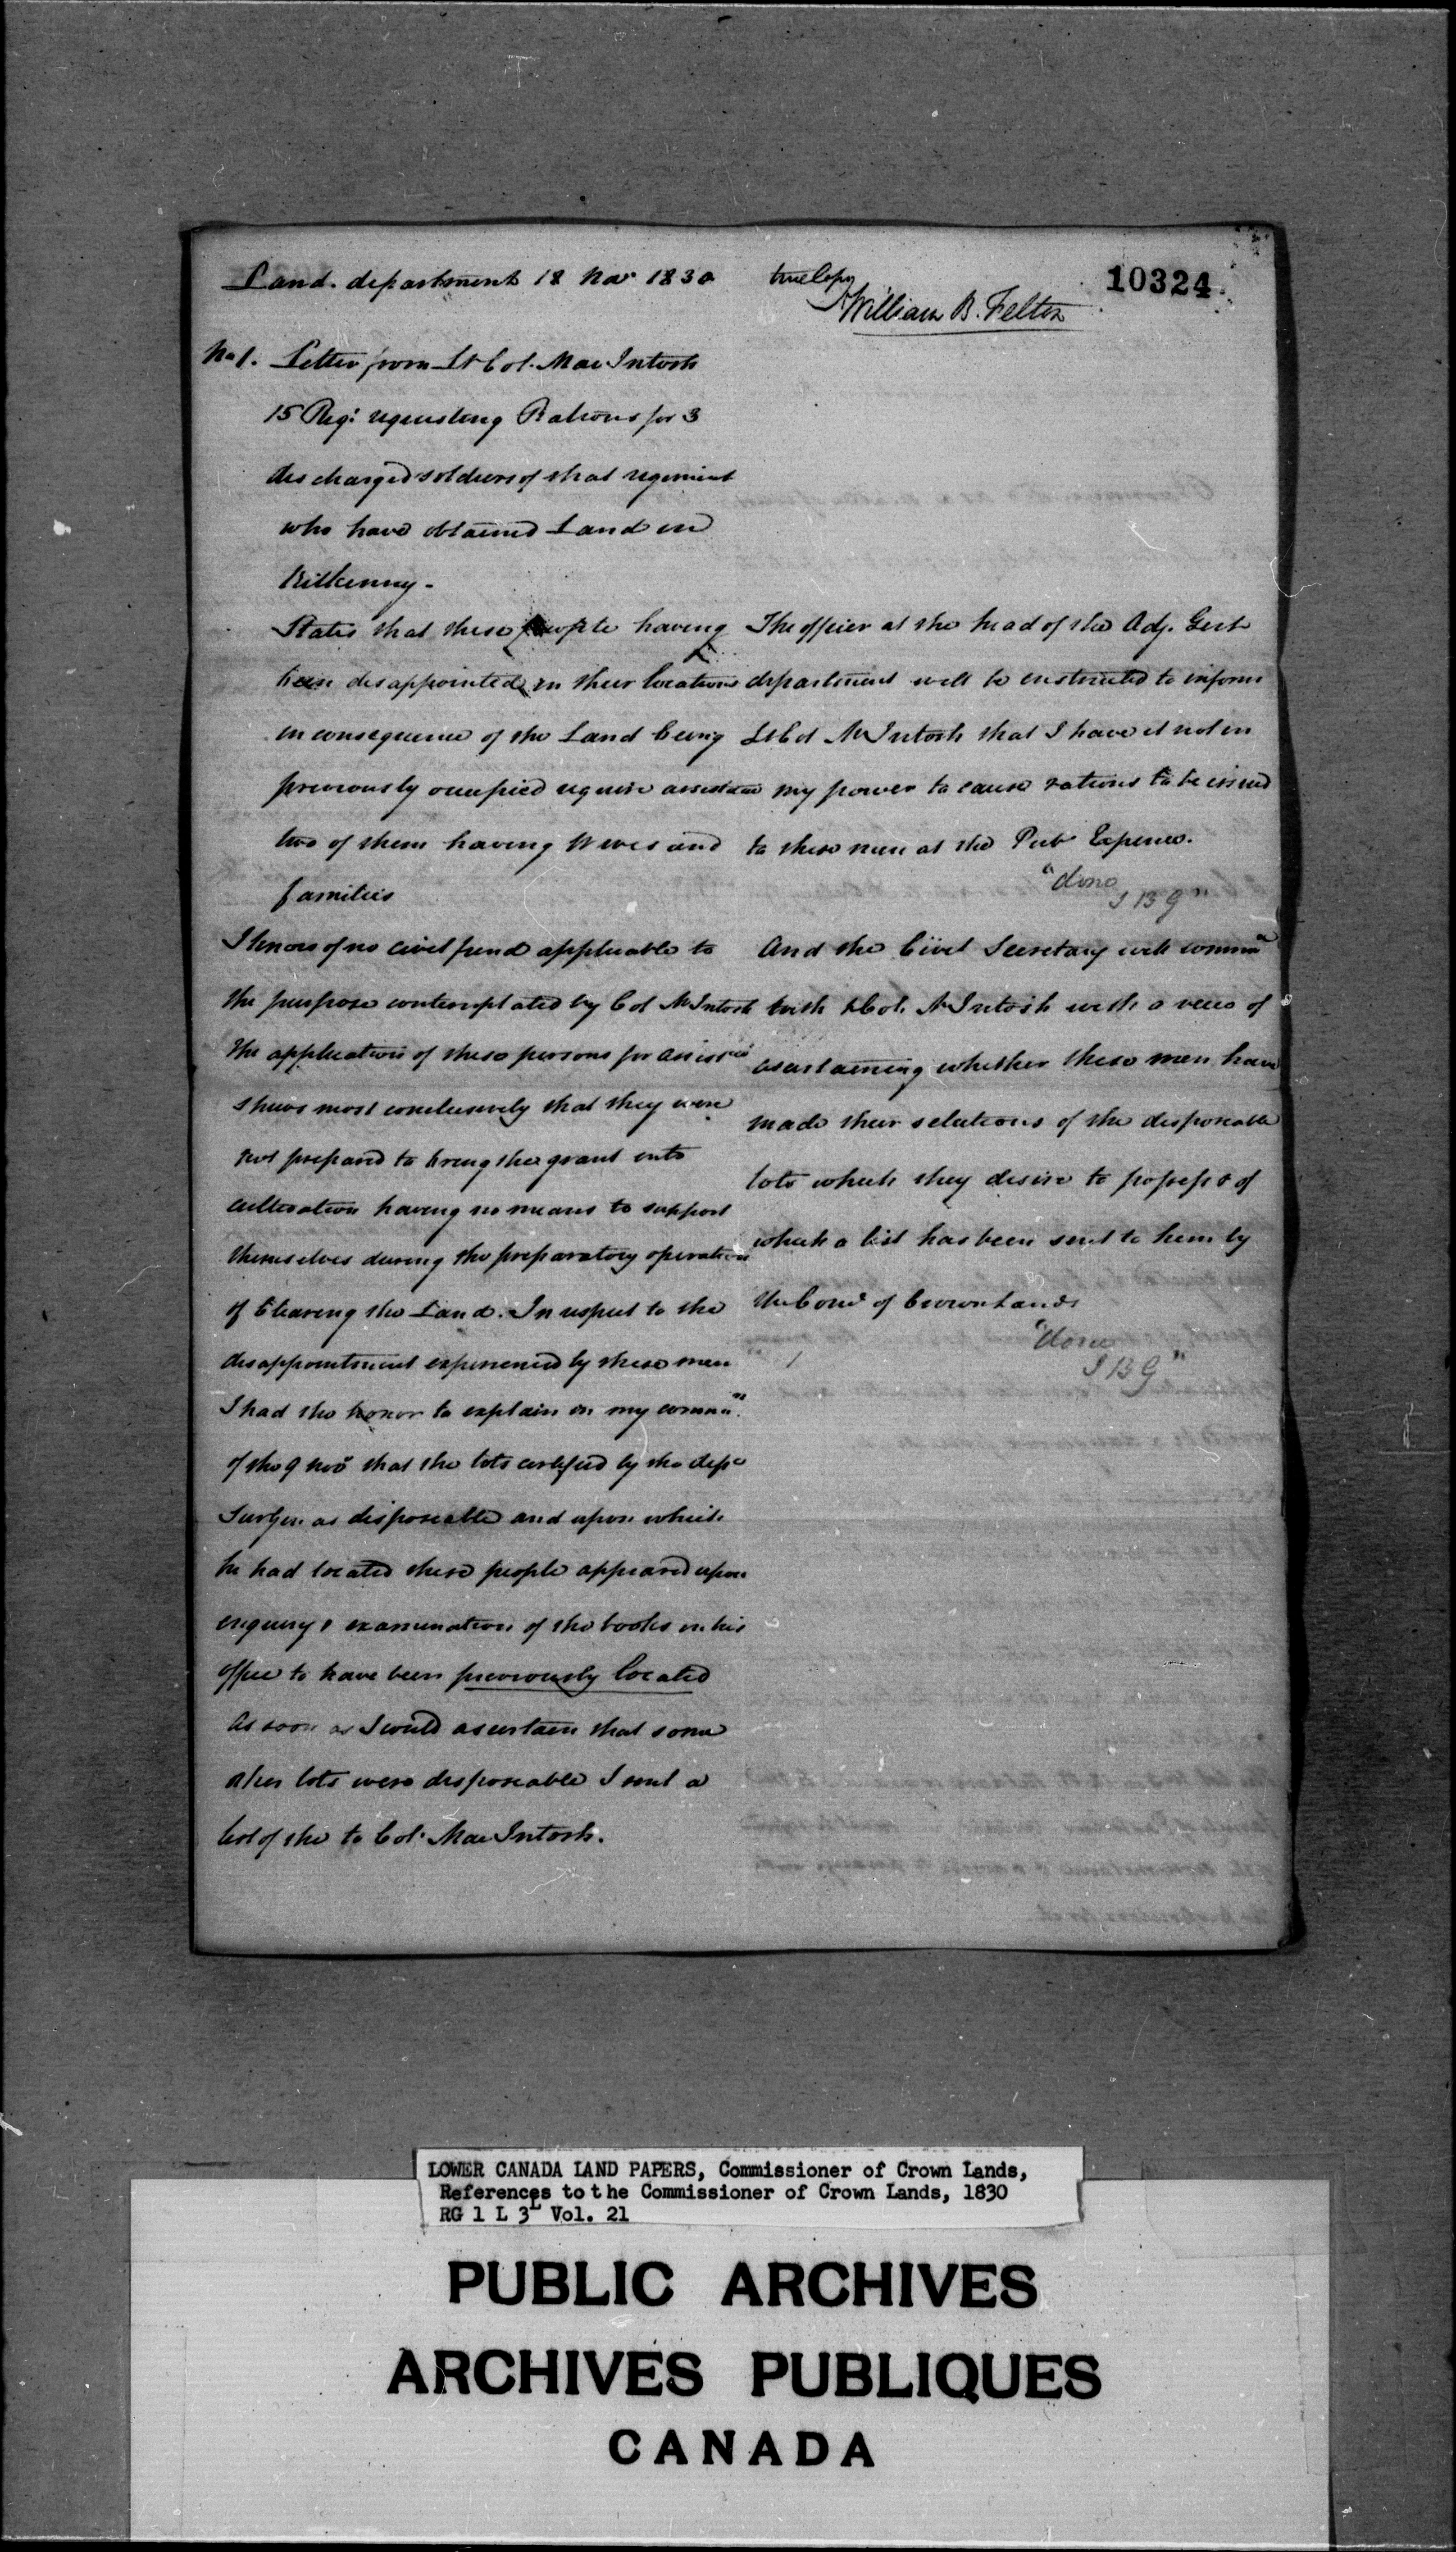 Land. department 18 Nov 1830
true Copy
William B. Felton
10324
No 1. Letter from Lt Col. MacIntosh
15 Regt requesting Rations for 3
discharged soldiers of that regiment
who have obtained Land in
Kilkenny -
States that these people having
been disappointed in their locations
in consequence of the Land being
previously occupied require assistance
two of them having Wives and
families
I know of no civil fund applicable to
the purpose contemplated by Col McIntosh
the application of these persons for assisce
shews most conclusively that they were
not prepared to bring the grant into
cultivation having no means to support
themselves during the preparatory operation
of Clearing the Land. In respect to the
disappointment experienced by these men
I had the honor to explain in my commn.
of the 9 Nov that the lots certified by the depy
SurGen as disposeable and upon which
he had located these people appeared upon
enquiry & examination of the books in his
office to have been previously located
As soon as I could ascertain that some
other lots were disposeable I sent a
list of the to Col. MacIntosh.
The officer at the head of the Adj. Genl
department will be instructed to inform
Lt Col McIntosh that I have it not in
my power to cause rations to be issued
to these men at the Pub Expence.
"done
J B G"
And the Civil Secretary will commn
with Lt Col. McIntosh with a view of
ascertaining whether these men have
made their selections of the disposeable
lots which they desire to possess & of
which a list has been sent to him by
the Comr of Crown Lands
"done
J B G"
LOWER CANADA LAND PAPERS, Commissioner of Crown Lands,
References to the Commissioner of Crown Lands, 1830
RG 1 L 3L Vol. 21
PUBLIC ARCHIVES
ARCHIVES PUBLIQUES
CANADA